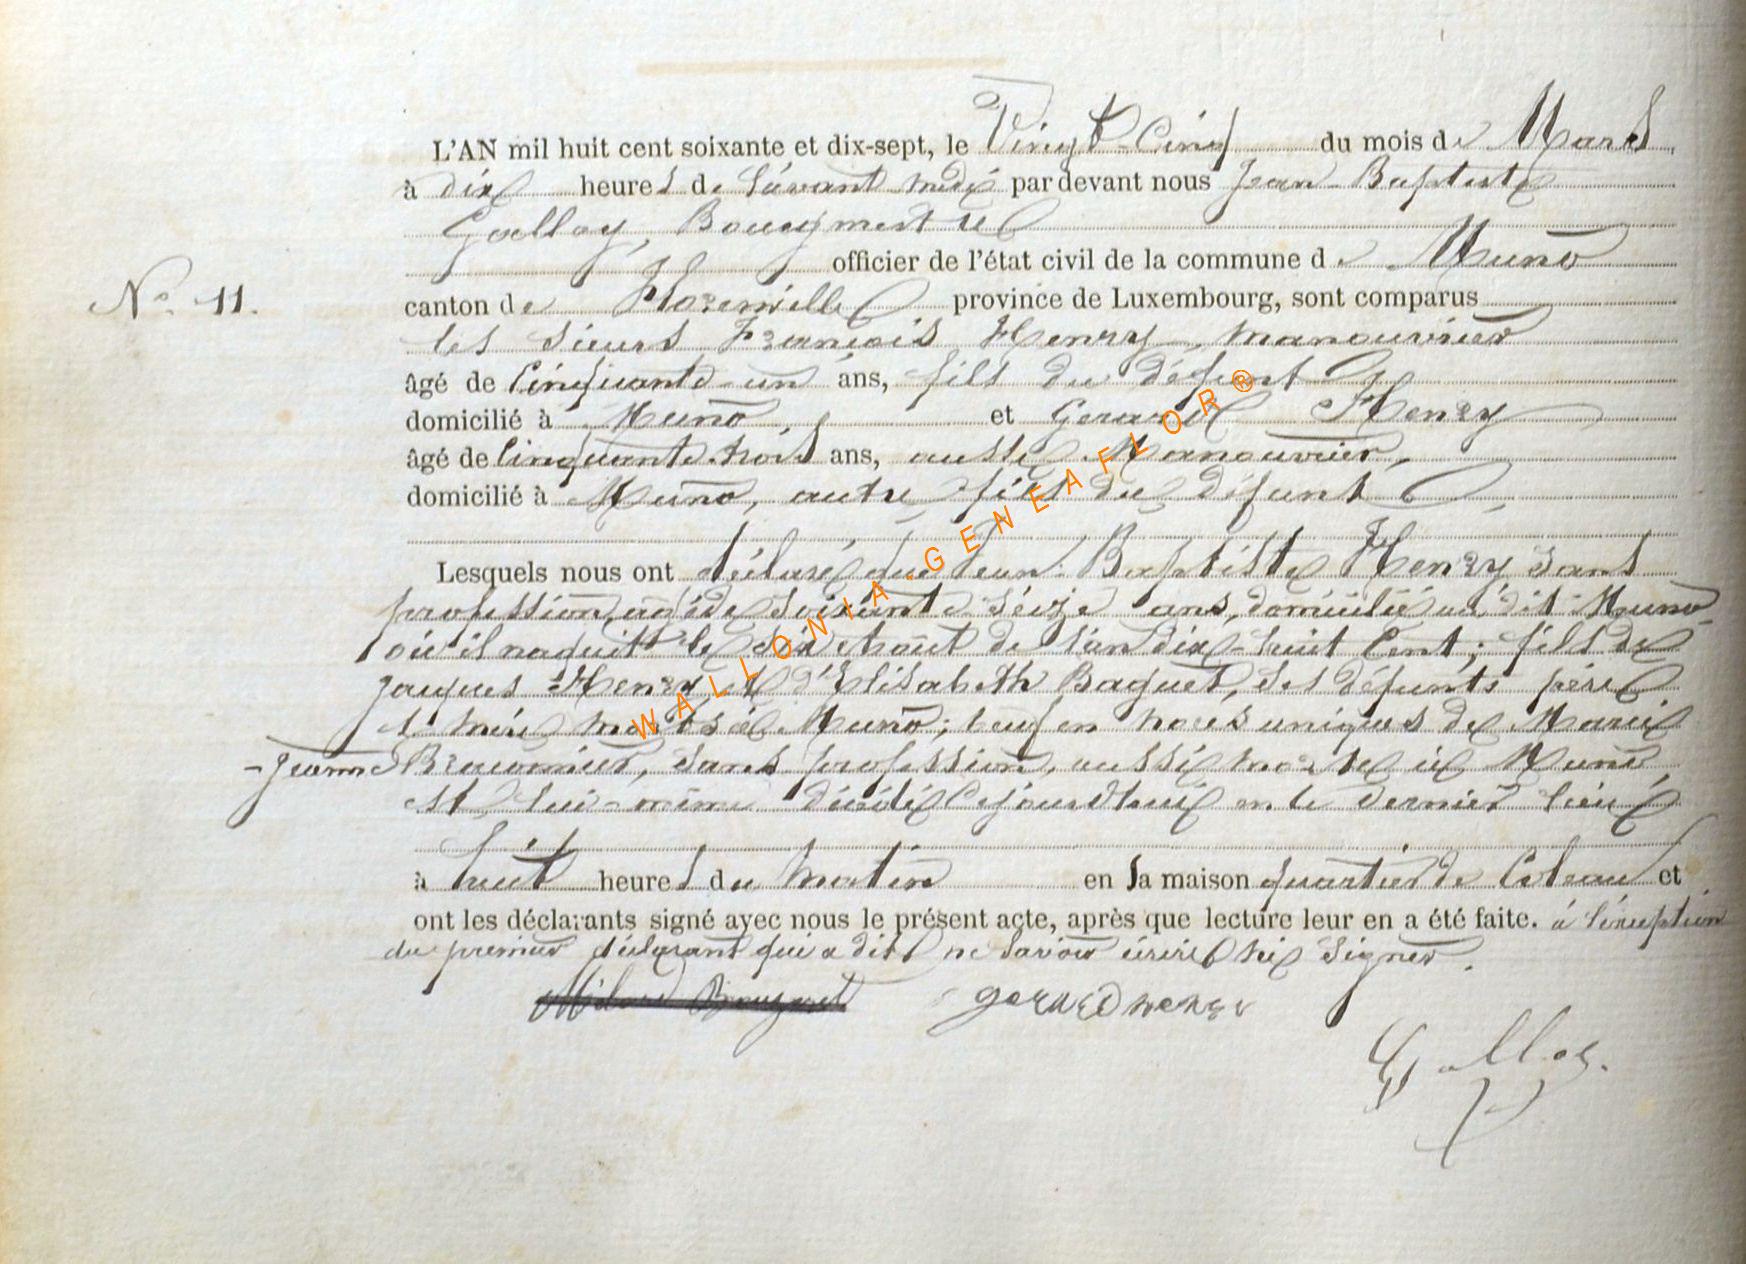 L'AN mil huit cent soixante et dix-sept, le Vingt-Cinq du mois de Mars,
à dix heures de l'avant midi par devant nous Jean-Baptiste
Galloy, Bourgmestre
officier de l'état civil de la commune de Muno
N° 11.
canton de Florenville province de Luxembourg, sont comparus
les sieurs François Henry, manouvrier
âgé de Cinquante-un ans, fils du défunt
domicilié à Muno, et Gerard Henry
âgé de Cinquante-trois ans, aussi Manouvrier,
domicilié à Muno, autre fils du défunt,
Lesquels nous ont déclaré que Jean-Baptiste Henry sans
profession, agé de soixante-seize ans, domicilié au dit Muno
où il naquit le dix Août de l'an dix-huit Cent; fils de
Jacques Henry et d'Elisabeth Baquet, ses défunts père
et mère morts à Muno; veuf en noces uniques de Marie
-Jeanne Braconnier, sans profession, aussi morte à Muno,
est lui-même décédé Cejourd'hui en ce dernier lieu
à huit heures du matin en sa maison quartier de et
ont les déclarants signé avec nous le présent acte, après que lecture leur en a été faite. à l'éxception
du premier déclarant qui a dit ne savoir écrire ni signer.
gerard henry
Galloy.
WALLONIA-GENEAFLOR®